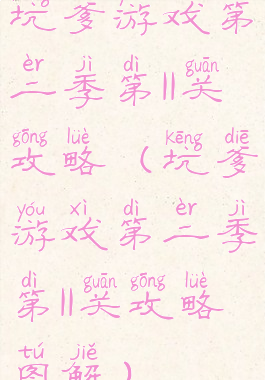 坑爹游戏第
èr jì dì guān
二季第11关
gōng lüè kēng diē
攻略（坑爹
yóu xì dì èr jì
游戏第二季
dì guān gōng lüè
第11关攻略
tú jiě
图解）